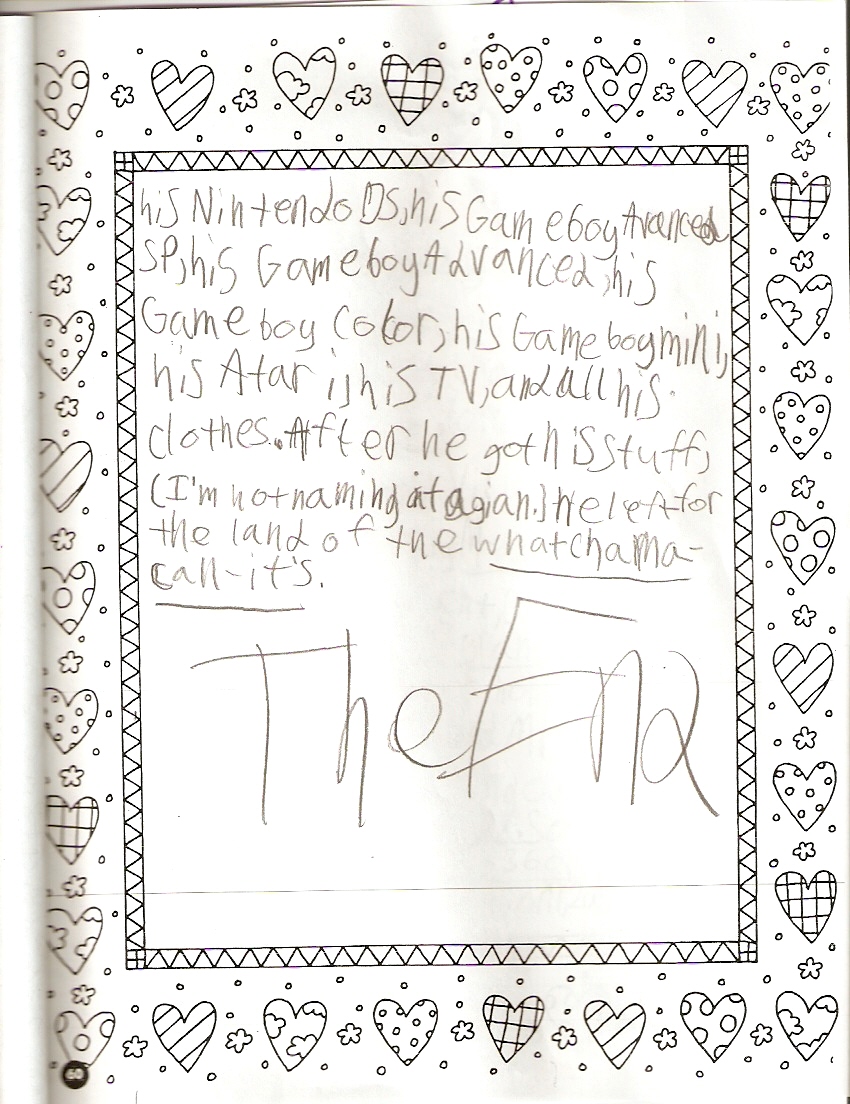 his Nintendo DS, his Gameboy Avanced
SP, his Gameboy Advanced, his
Gameboy Color, his Gameboy mini,
his Atari, his TV, and all his
clothes. After he got his stuff,
(I'm not naming it agian.) He left for
the land of the whatchama-
call-it's.
The End
60